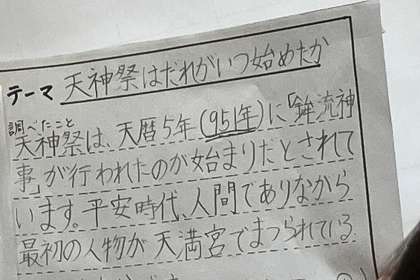 テーマ 天神祭はだれがいつ始めたか
調べたこと
天神祭は、天暦5年(951年)に「鉾流神
事」が行われたのが始まりだとされて
います。平安時代、人間でありながら
最初の人物が天満宮でまつられている